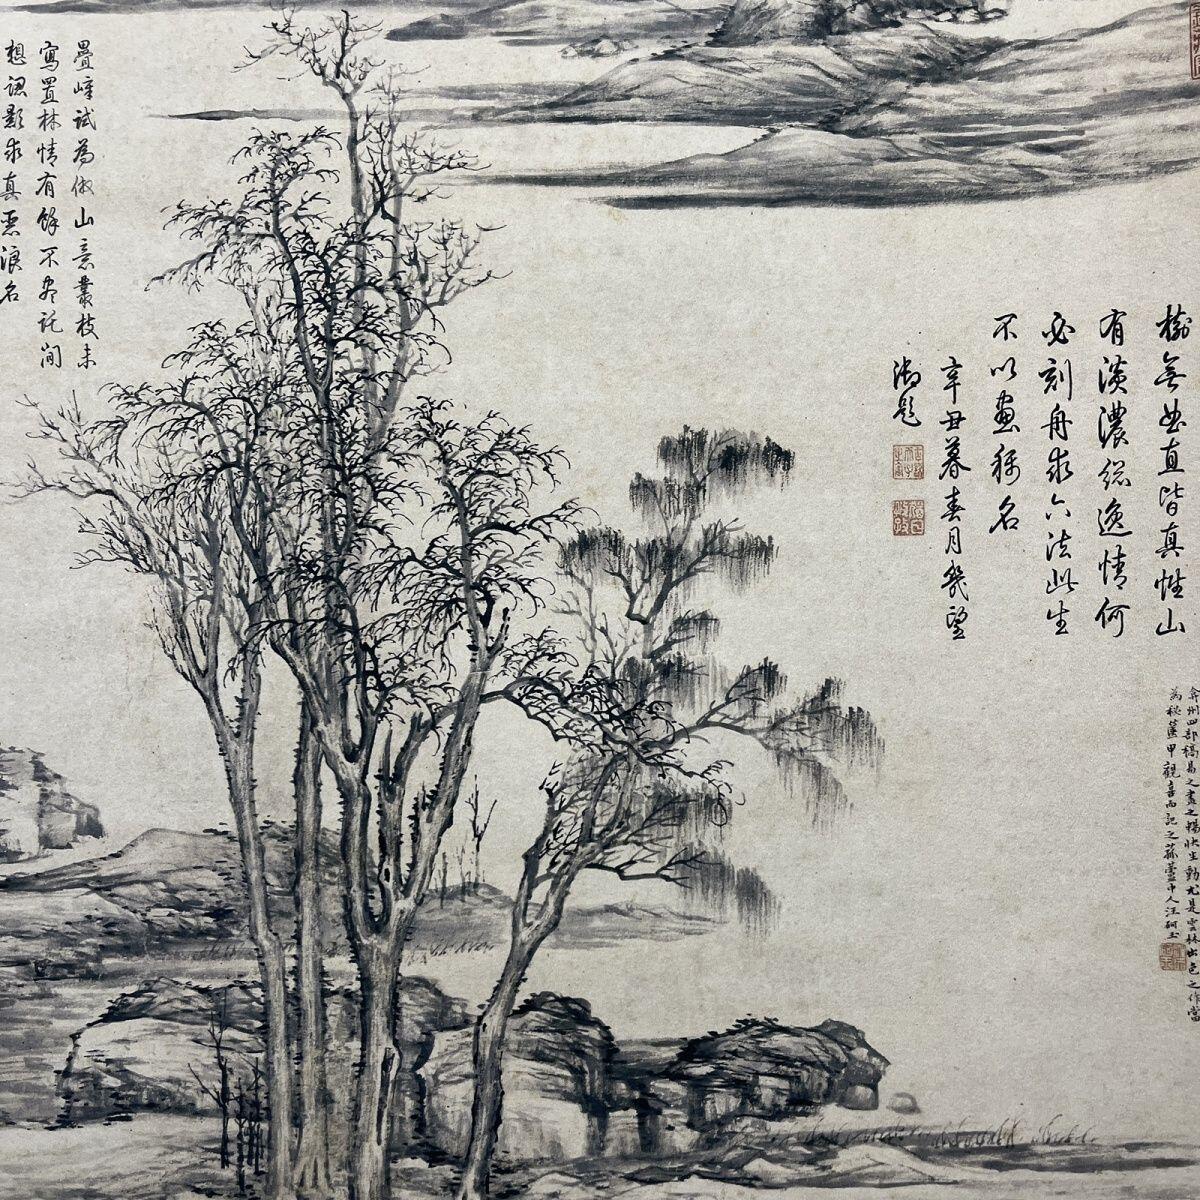 樹無曲直皆真性山
有淡濃總逸情何
必刻舟求六法此生
不以畫稱名
辛丑暮春月幾望
御題
弇州四部稿易之畫之
尤是雲林出色之作當
為秘笈甲觀喜而記之菰蘆中人汪砢玉
疊嶂試為倣山意叢枝未
寫置林情有餘不盡託間
想認影求真惡浪名